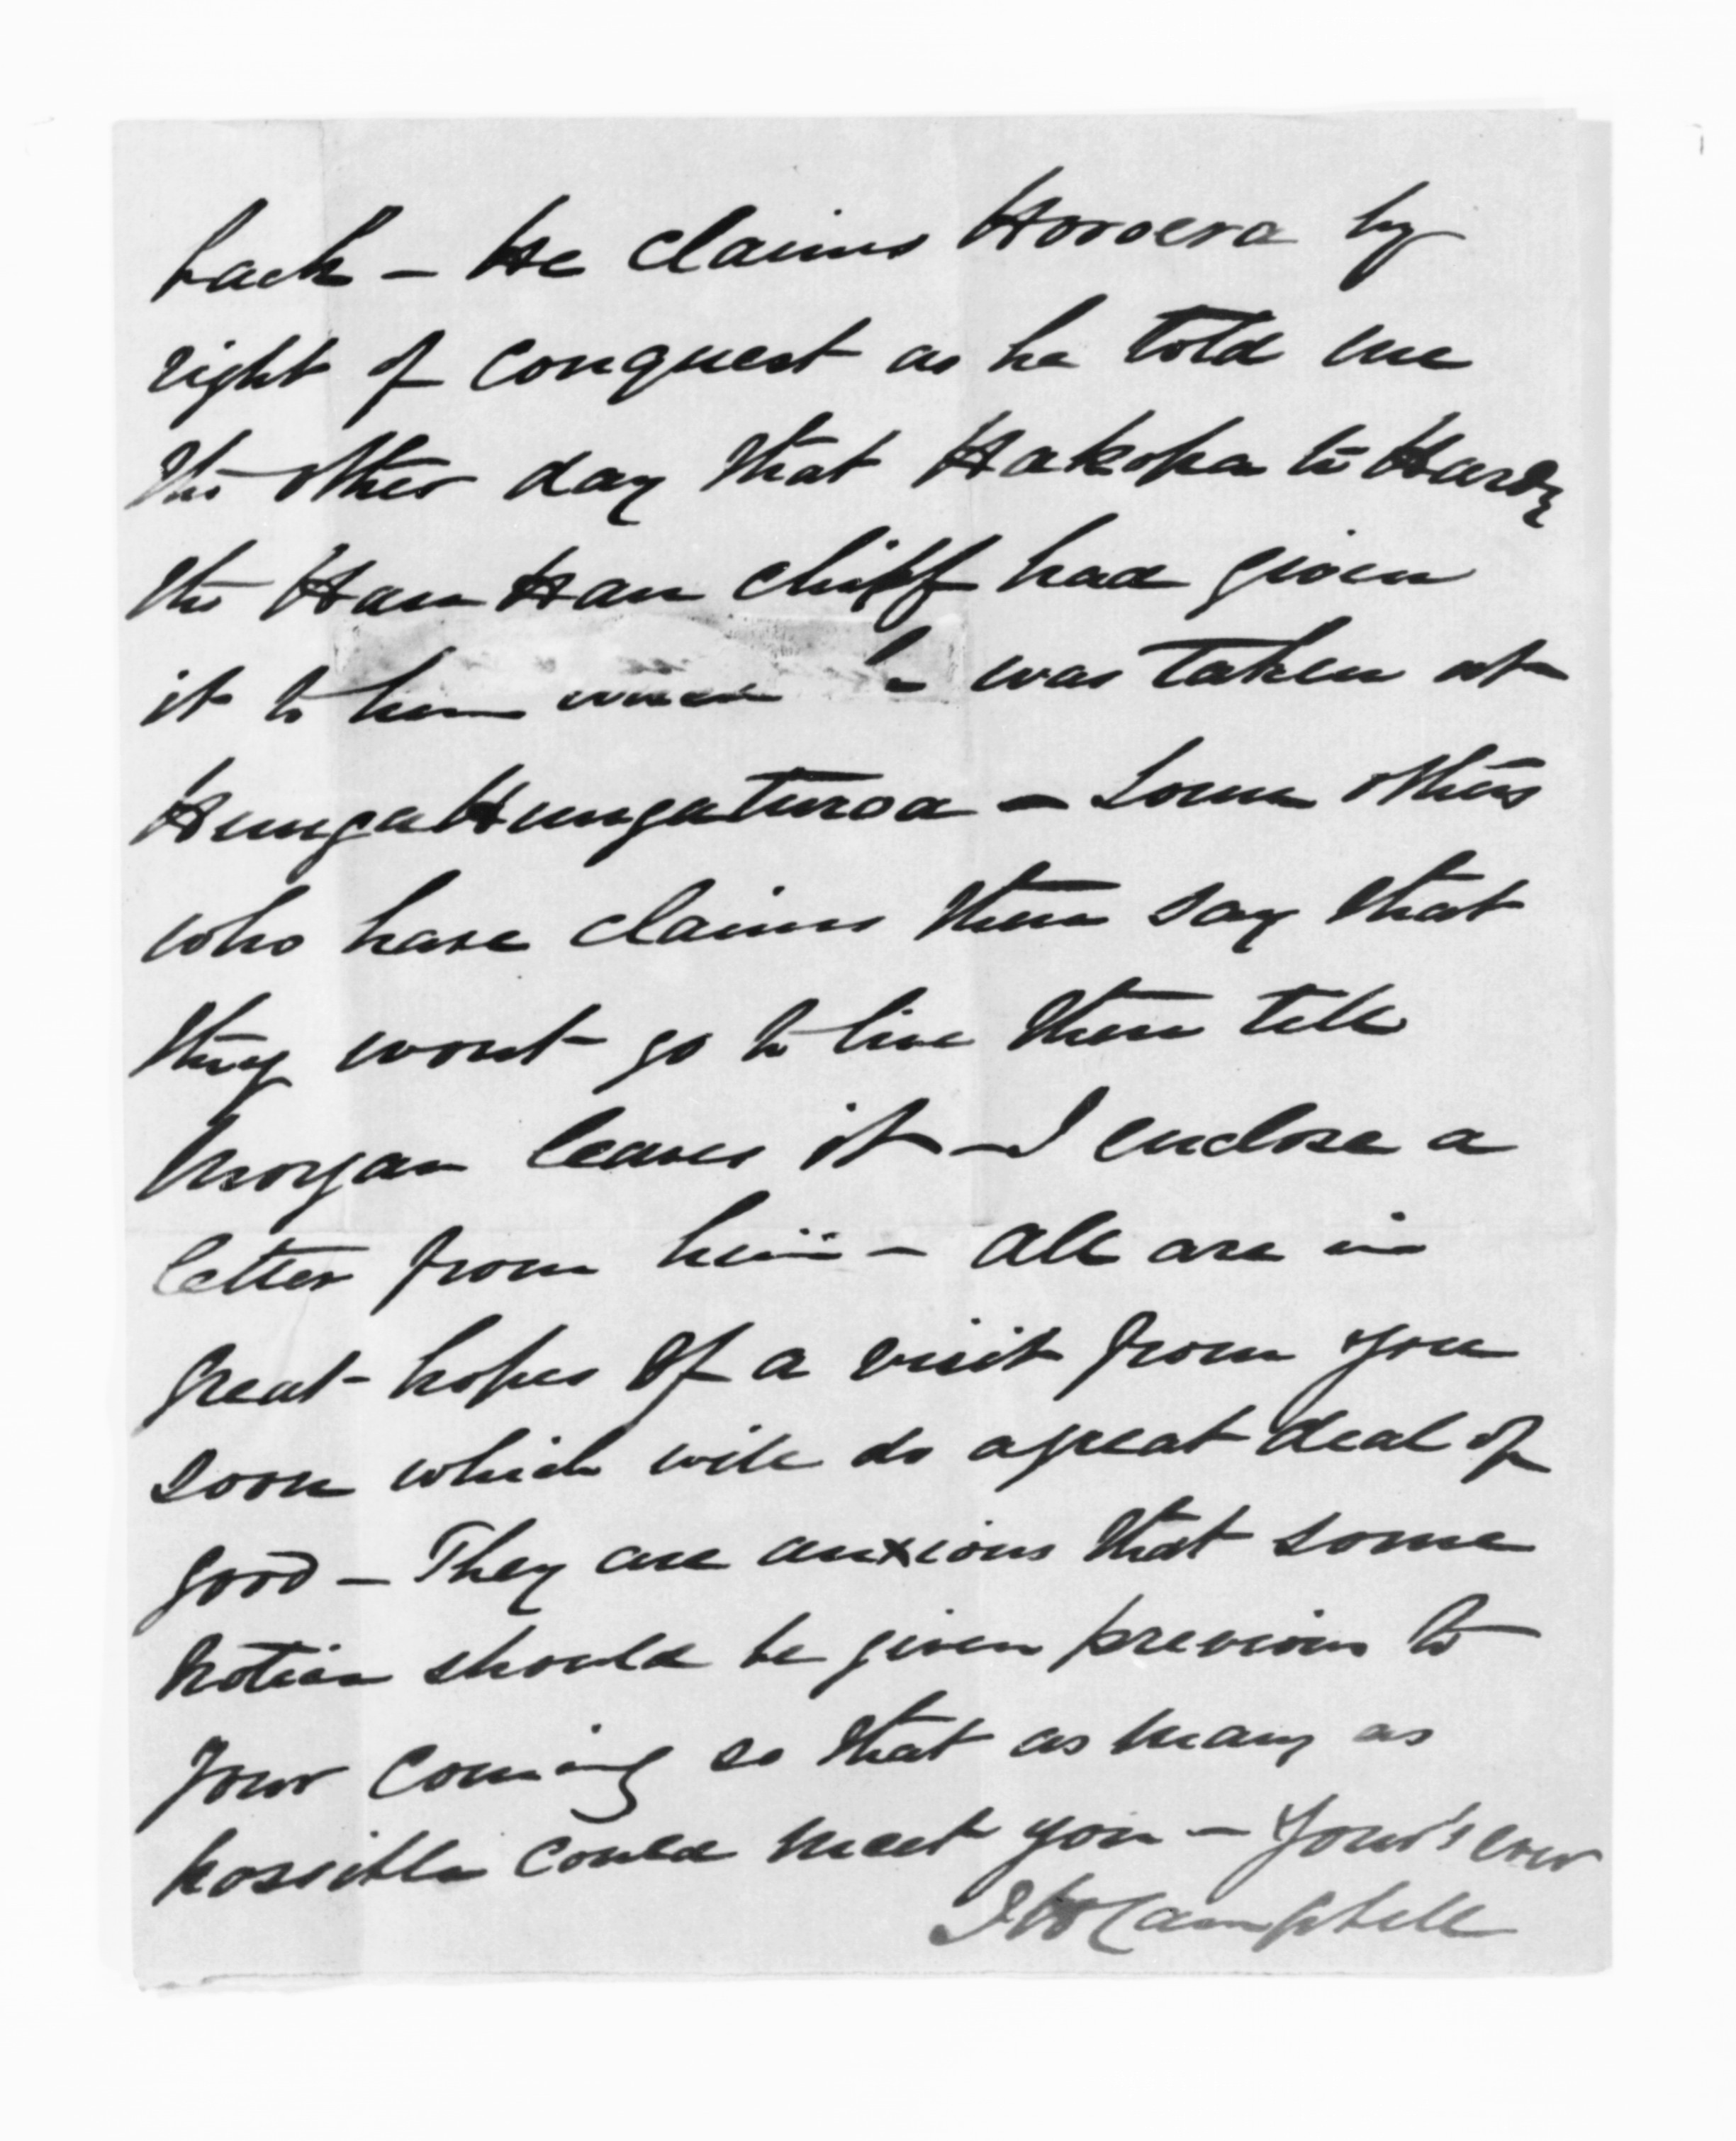 back – He claims Horoera by
right of conquest as he told me
the other day that Hakopa te Hardy
the Hau Hau chiff had given
it to him when he was taken at
HungaHungaturoa – Some others
who have claims there say that
they wont go to live there till
Morgan leaves it – I enclose a
letter from him – All are in
great hopes of a visit from you
soon which will do a great deal of
good – They are anxious that some
notice should be given previous to
your coming so that as many as
possible could meet you – Your's ever
Campbell